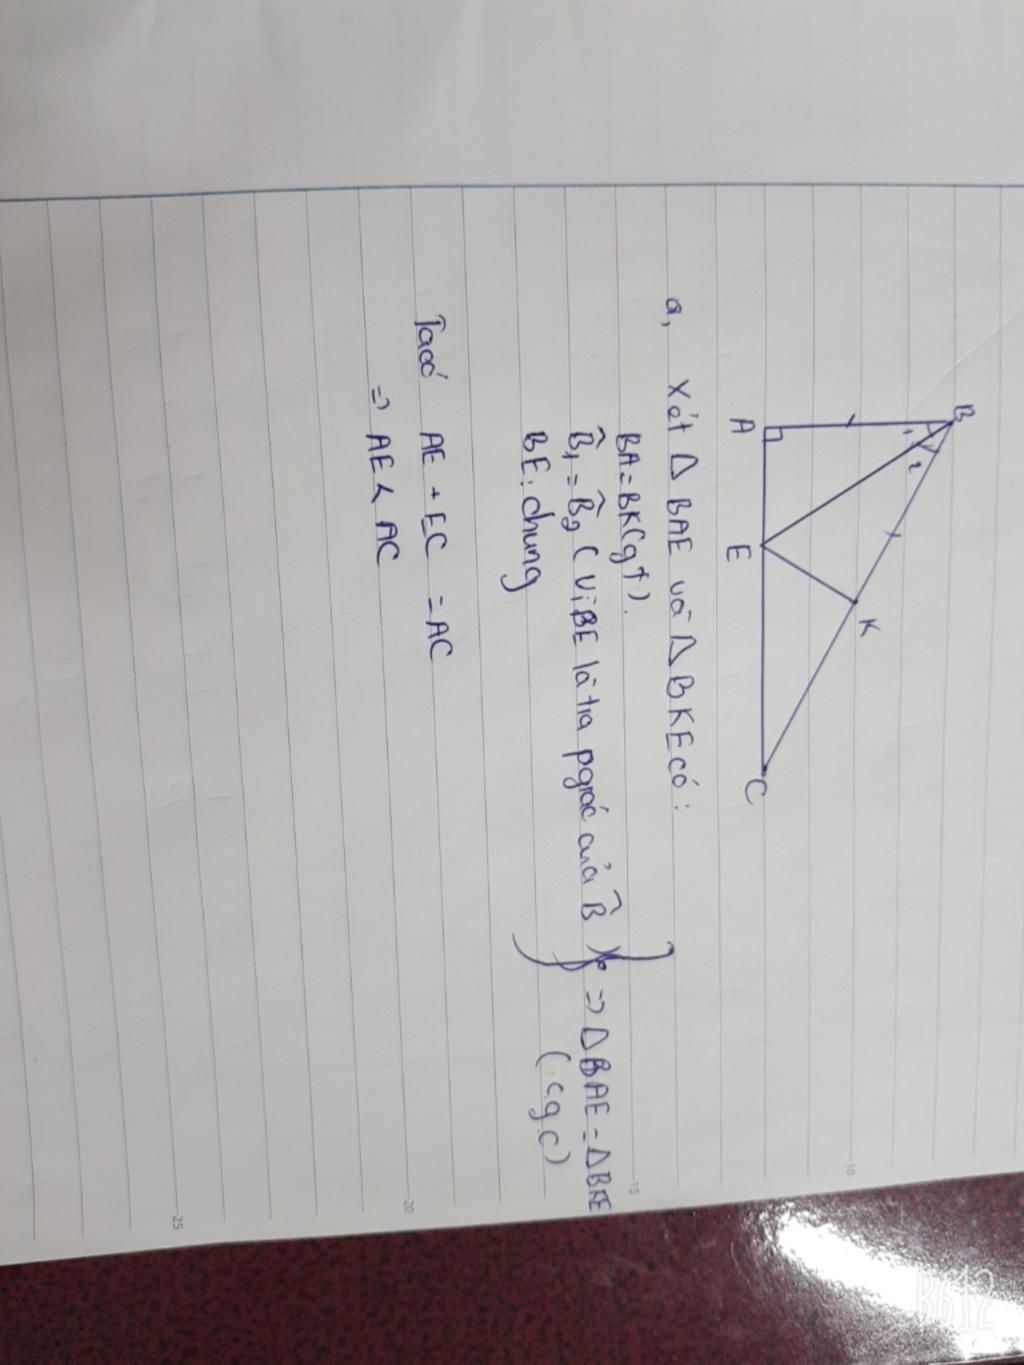 B
1
2
K
A
E
C
a, Xét Δ BAE và Δ BKE có:
BA = BK (gt).
B̂₁ = B̂₂ (vì BE là tia pgiác của B̂)
BE: chung
=> ΔBAE = ΔBKE
(c.g.c)
Ta có AE + EC = AC
=> AE < AC
10
15
20
25
B612